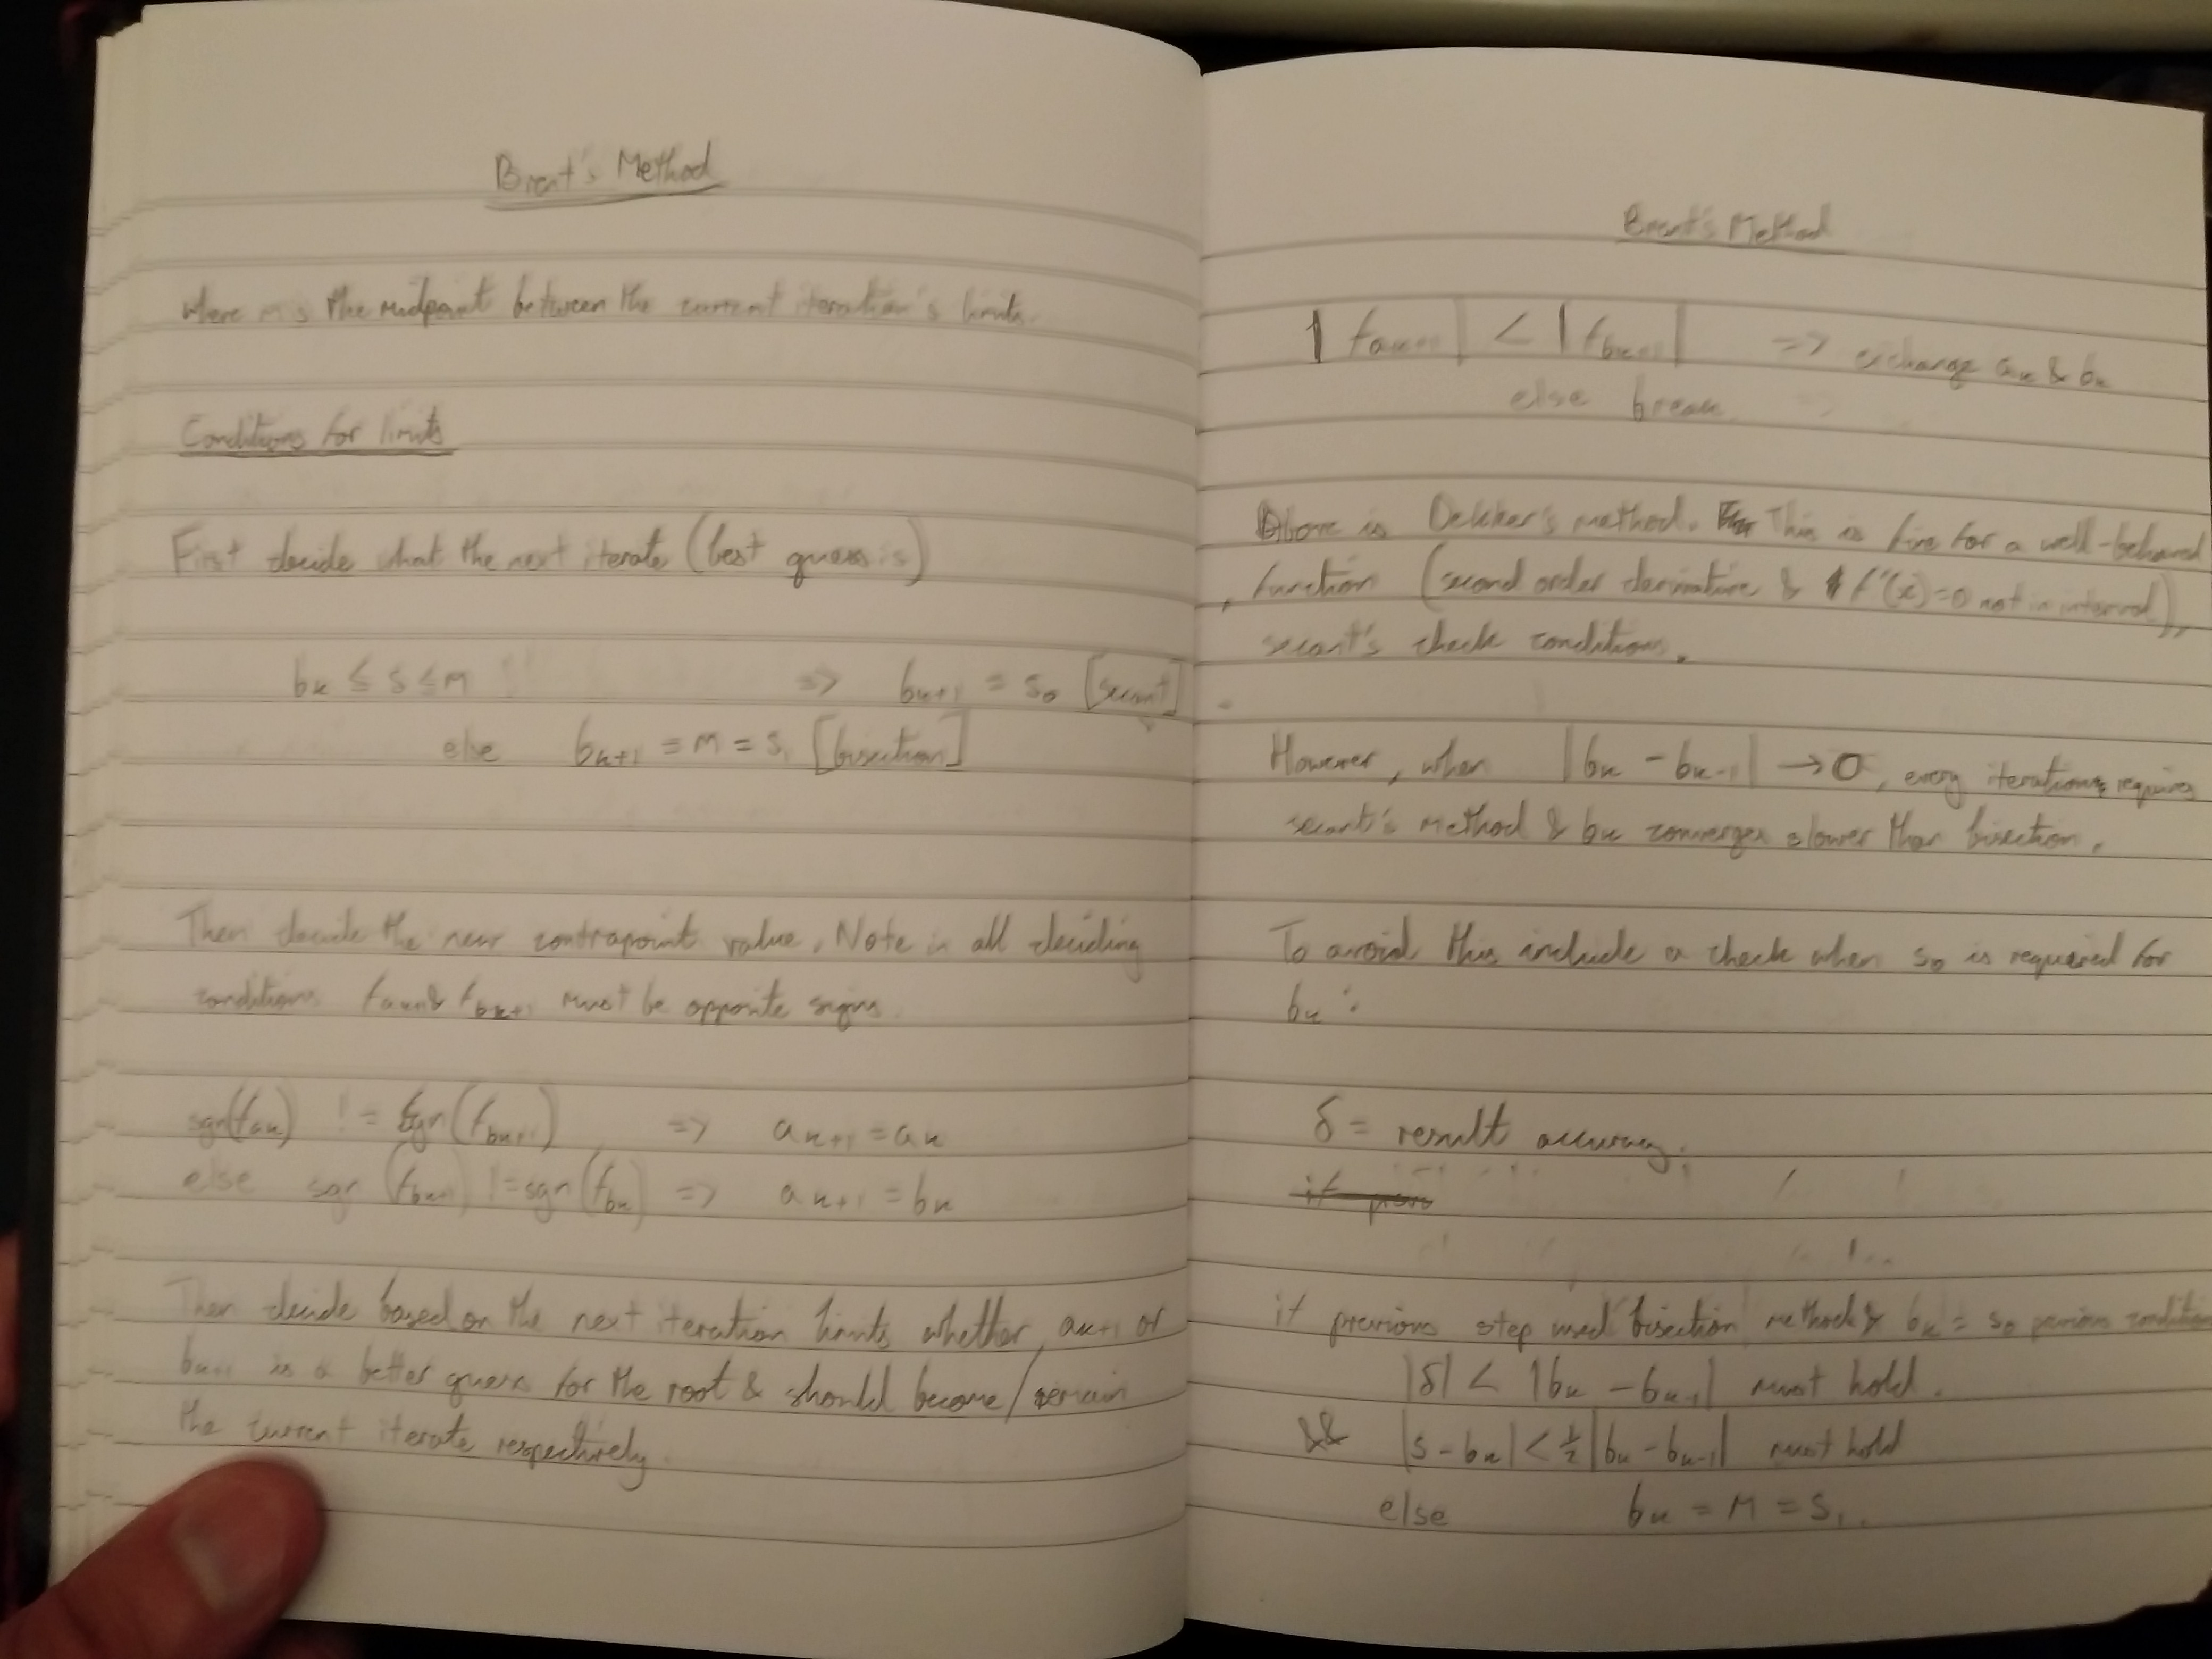 Brent's Method
where m is the midpoint between the current iteration's limits.
Conditions for limits
First decide what the next iterate (best guess is)
bₖ ≤ s ≤ m => bₖ₊₁ = s₀ [secant]
else bₖ₊₁ = m = s₁ [bisection]
Then decide the new contrapoint value. Note in all deciding
conditions faₖ₊₁ & fbₖ₊₁ must be opposite signs.
sgn(faₖ) != sgn(fbₖ₊₁) => aₖ₊₁ = aₖ
else sgn(fbₖ₊₁) != sgn(fbₖ) => aₖ₊₁ = bₖ
Then decide based on the next iteration limits whether aₖ₊₁ or
bₖ₊₁ is a better guess for the root & should become/remain
the current iterate respectively.
Brent's Method
|faₖ₊₁| < |fbₖ₊₁| => exchange aₖ & bₖ
else break
Above is Dekker's method. This is fine for a well-behaved
function (second order derivative & f''(x)=0 not in interval),
secant's check conditions.
However, when |bₖ - bₖ₋₁| → 0, every iteration requires
secant's method & bₖ converges slower than bisection.
To avoid this include a check when s₀ is required for
bₖ :
δ = result accuracy.
if prev
if previous step used bisection method & bₖ = s₀ previous condition
|δ| < |bₖ - bₖ₋₁| must hold.
&& |s - bₖ| < ½ |bₖ - bₖ₋₁| must hold
else bₖ = m = s₁.